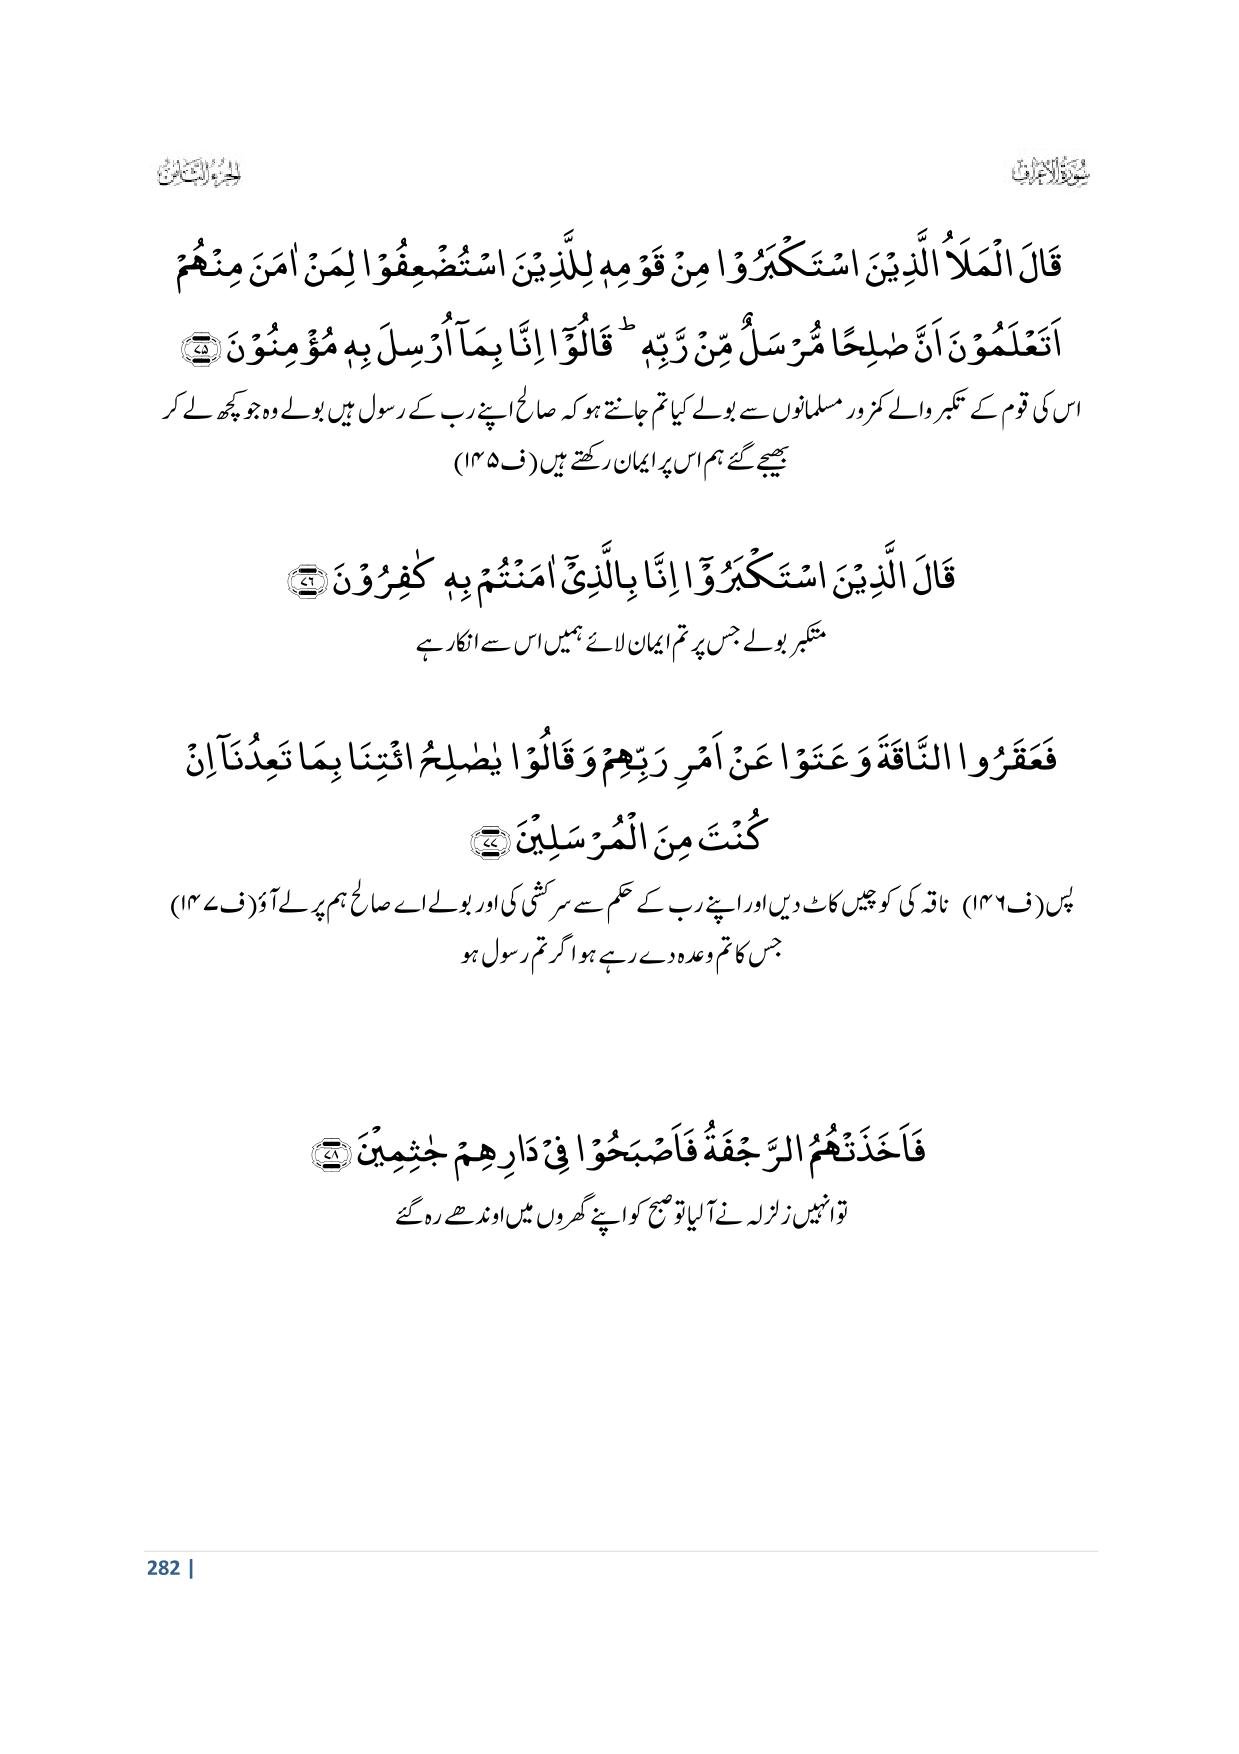 سُوْرَةُ الْاَعْرَاف
الجزء الثامن
قَالَ الْمَلَاُ الَّذِيْنَ اسْتَكْبَرُوْا مِنْ قَوْمِهٖ لِلَّذِيْنَ اسْتُضْعِفُوْا لِمَنْ اٰمَنَ مِنْهُمْ
اَتَعْلَمُوْنَ اَنَّ صٰلِحًا مُّرْسَلٌ مِّنْ رَّبِّهٖ ؕ قَالُوْۤا اِنَّا بِمَاۤ اُرْسِلَ بِهٖ مُؤْمِنُوْنَ ﴿۷۵﴾
اس کی قوم کے تکبر والے کمزور مسلمانوں سے بولے کیا تم جانتے ہو کہ صالح اپنے رب کے رسول ہیں بولے وہ جو کچھ لے کر
بھیجے گئے ہم اس پر ایمان رکھتے ہیں (ف۱۴۵)
قَالَ الَّذِيْنَ اسْتَكْبَرُوْۤا اِنَّا بِالَّذِيْۤ اٰمَنْتُمْ بِهٖ كٰفِرُوْنَ ﴿۷۶﴾
متکبر بولے جس پر تم ایمان لائے ہمیں اس سے انکار ہے
فَعَقَرُوا النَّاقَةَ وَ عَتَوْا عَنْ اَمْرِ رَبِّهِمْ وَ قَالُوْا يٰصٰلِحُ ائْتِنَا بِمَا تَعِدُنَاۤ اِنْ
كُنْتَ مِنَ الْمُرْسَلِيْنَ ﴿۷۷﴾
پس (ف۱۴۶) ناقہ کی کوچیں کاٹ دیں اور اپنے رب کے حکم سے سرکشی کی اور بولے اے صالح ہم پر لے آؤ (ف۱۴۷)
جس کا تم وعدہ دے رہے ہو اگر تم رسول ہو
فَاَخَذَتْهُمُ الرَّجْفَةُ فَاَصْبَحُوْا فِيْ دَارِهِمْ جٰثِمِيْنَ ﴿۷۸﴾
تو انہیں زلزلہ نے آ لیا تو صبح کو اپنے گھروں میں اوندھے رہ گئے
282 |